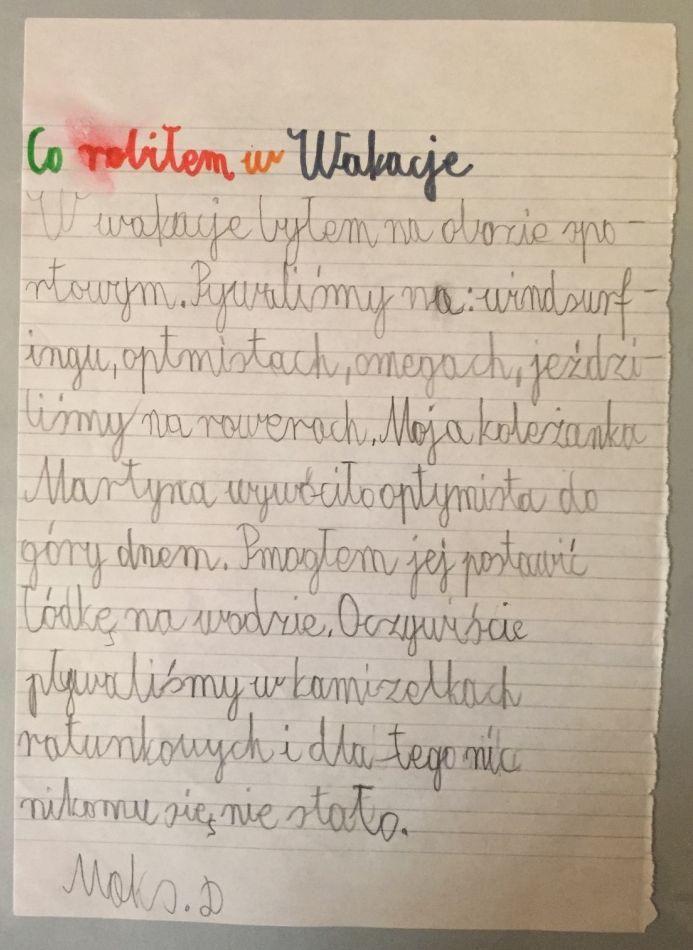 Co robiłem w Wakacje
W wakacje byłem na obozie spo-
rtowym. Pywaliśmy na: windsurf-
ingu, optmistach, omegach, jeździ-
liśmy na rowerach. Moja koleżanka
Martyna wywóciło optymista do
góry dnem. Pmogłem jej postawić
łódkę na wodzie. Oczywiście
pływaliśmy w kamizelkach
ratunkowych i dla tego nic
nikomu się nie stało.
Maks. D